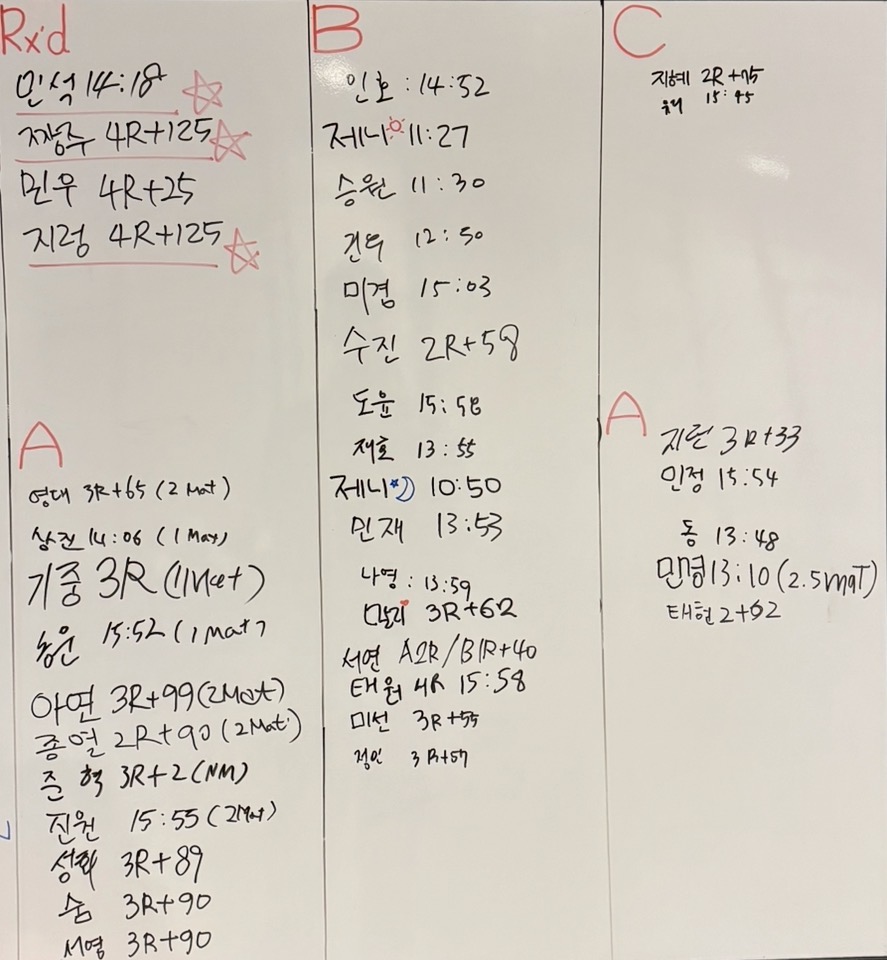 Rx'd
민석 14:18
짱주 4R+125
민우 4R+25
지렁 4R+125
A
영대 3R+65 (2 Mat)
상진 14:06 (1 Mat)
기중 3R (1Mat)
15:52 (1 Mat)
아연 3R+99 (2Mat)
종열 2R+90 (2Mat)
준혁 3R+2 (NM)
진원 15:55 (2Mat)
성화 3R+89
숨 3R+90
서영 3R+90
B
인호 : 14:52
제니 11:27
승원 11:30
건우 12:50
미겸 15:03
수진 2R+58
도윤 15:58
재호 13:55
제니 10:50
민재 13:53
나영 : 13:59
3R+62
서연 A2R/B1R+40
태원 4R 15:58
미선 3R+55
정인 3R+57
C
지혜 2R+75
15:45
A
지런 3R+33
인정 15:54
동 13:48
민경 13:10 (2.5maT)
태현 2+62